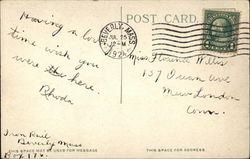 POST CARD
BEVERLY, MASS.
JUL 25
12-M
192
Having a lovely
time wish you
were here.
Rhoda
Iron Rail
Beverly Mass
Box 176
Miss Florence Wells
137 Ocean Ave
New London
Conn.
THIS SPACE MAY BE USED FOR MESSAGE
THIS SPACE FOR ADDRESS